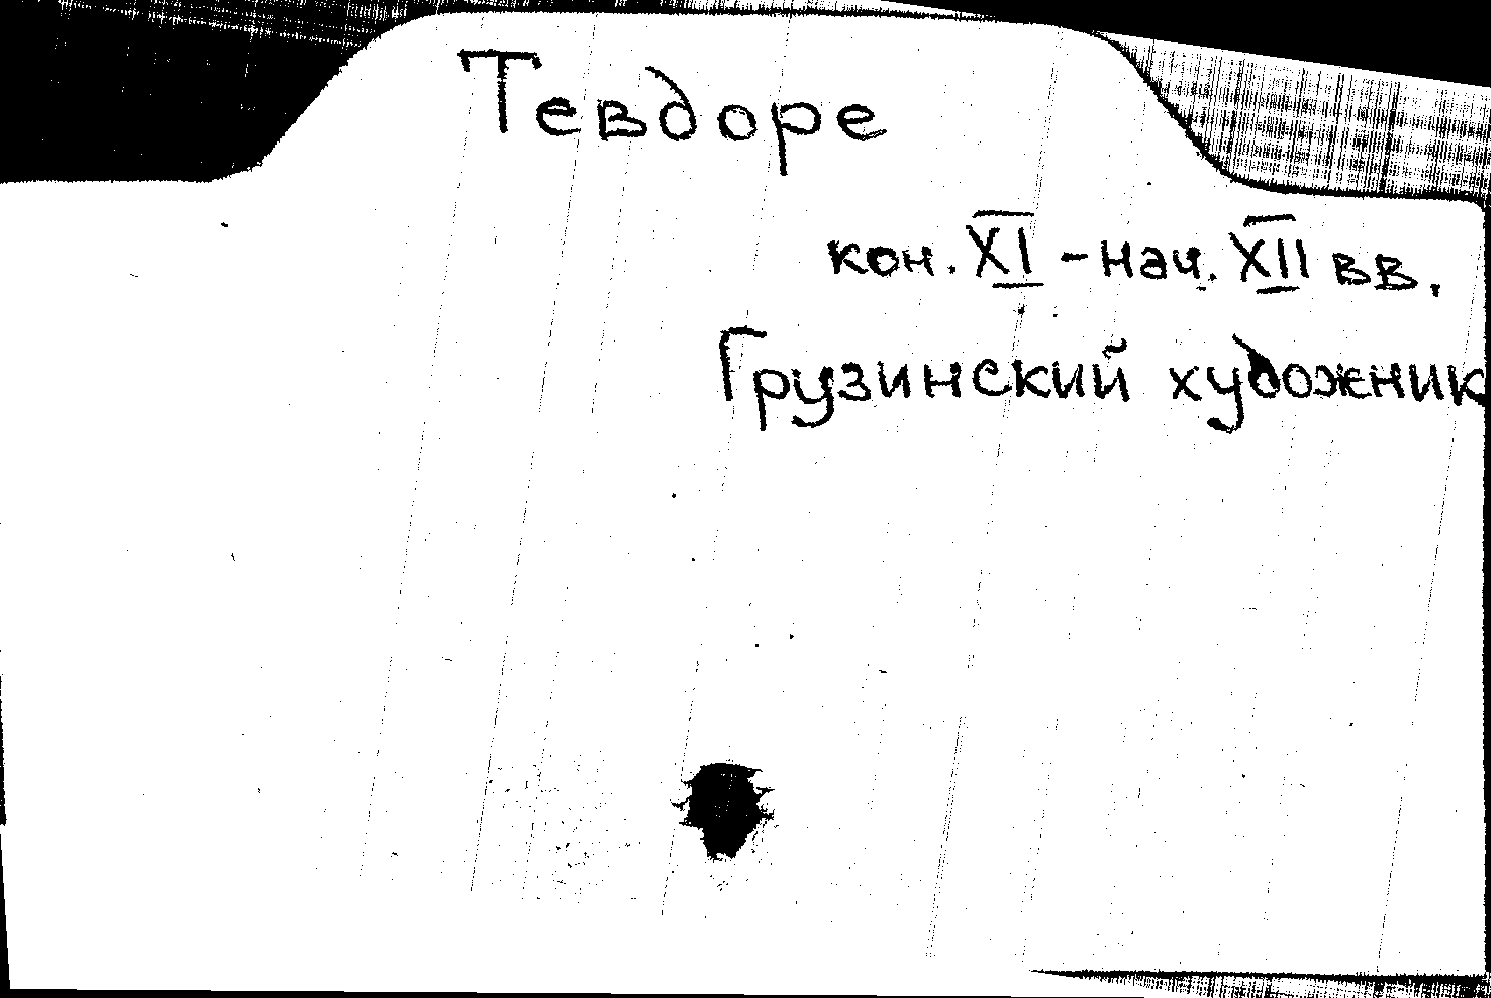 Тевдоре
кон. XI - нач. XII вв.
Грузинский художник